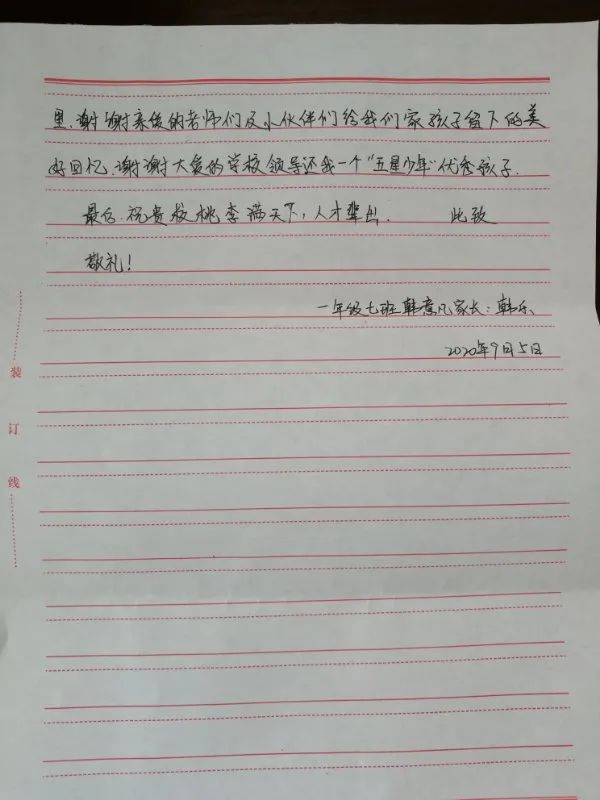 里.谢谢亲爱的老师们及小伙伴们给我们家孩子留下的美
好回忆.谢谢大爱的学校领导还我一个"五星少年"优秀孩子.
最后.祝贵校桃李满天下,人才辈出. 此致
敬礼!
一年级七班韩意凡家长:韩乐
2020年9月5日
装
订
线